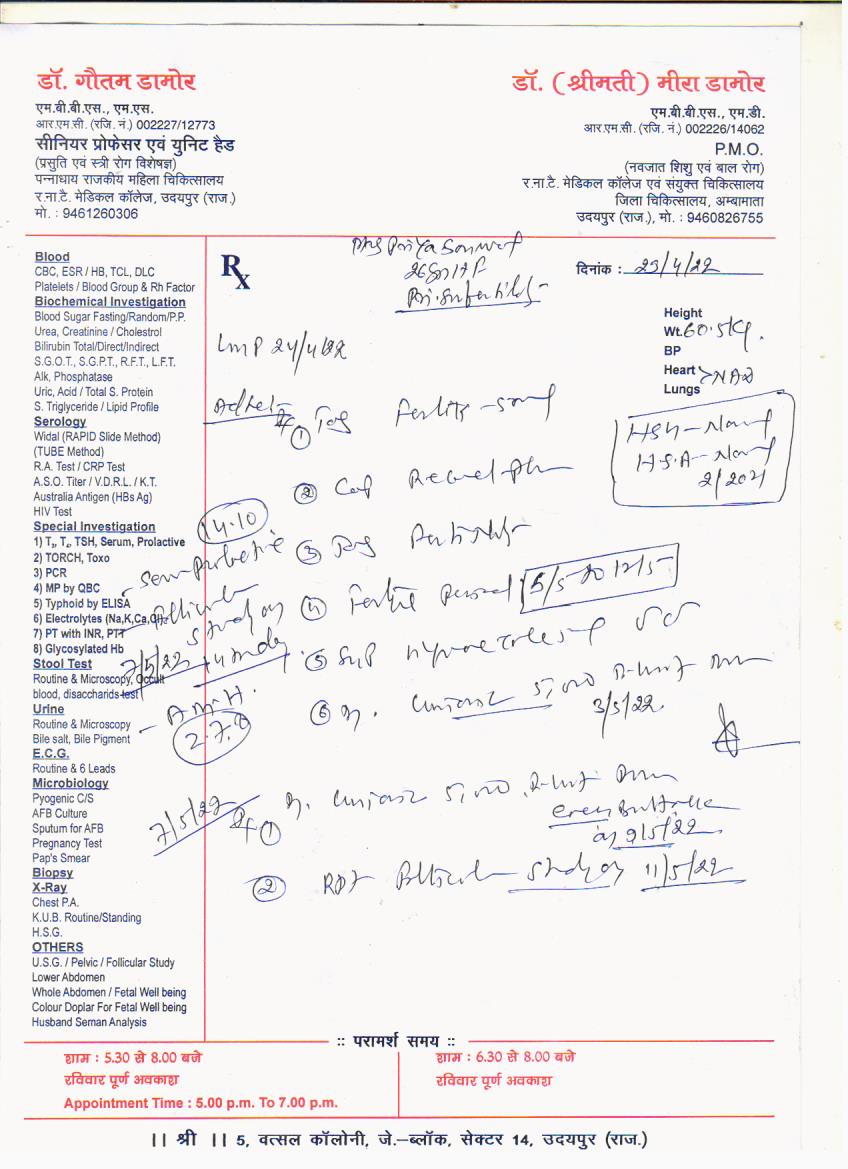 डॉ. गौतम डामोर
एम.बी.बी.एस., एम.एस.
आर.एम.सी. (रजि. नं.) 002227/12773
सीनियर प्रोफेसर एवं युनिट हैड
(प्रसुति एवं स्त्री रोग विशेषज्ञ)
पन्नाधाय राजकीय महिला चिकित्सालय
र.ना.टै. मेडिकल कॉलेज, उदयपुर (राज.)
मो. : 9461260306
डॉ. (श्रीमती) मीरा डामोर
एम.बी.बी.एस., एम.डी.
आर.एम.सी. (रजि. नं.) 002226/14062
P.M.O.
(नवजात शिशु एवं बाल रोग)
र.ना.टै. मेडिकल कॉलेज एवं संयुक्त चिकित्सालय
जिला चिकित्सालय, अम्बामाता
उदयपुर (राज.), मो. : 9460826755
Blood
CBC, ESR / HB, TCL, DLC
Platelets / Blood Group & Rh Factor
Biochemical Investigation
Blood Sugar Fasting/Random/P.P.
Urea, Creatinine / Cholestrol
Bilirubin Total/Direct/Indirect
S.G.O.T., S.G.P.T., R.F.T., L.F.T.
Alk, Phosphatase
Uric, Acid / Total S. Protein
S. Triglyceride / Lipid Profile
Serology
Widal (RAPID Slide Method)
(TUBE Method)
R.A. Test / CRP Test
A.S.O. Titer / V.D.R.L. / K.T.
Australia Antigen (HBs Ag)
HIV Test
Special Investigation
1) T₃, T₄, TSH, Serum, Prolactive
2) TORCH, Toxo
3) PCR
4) MP by QBC
5) Typhoid by ELISA
6) Electrolytes (Na,K,Ca,Cl)
7) PT with INR, PTT
8) Glycosylated Hb
Stool Test
Routine & Microscopy, Occult
blood, disaccharids test
Urine
Routine & Microscopy
Bile salt, Bile Pigment
E.C.G.
Routine & 6 Leads
Microbiology
Pyogenic C/S
AFB Culture
Sputum for AFB
Pregnancy Test
Pap's Smear
Biopsy
X-Ray
Chest P.A.
K.U.B. Routine/Standing
H.S.G.
OTHERS
U.S.G. / Pelvic / Follicular Study
Lower Abdomen
Whole Abdomen / Fetal Well being
Colour Doplar For Fetal Well being
Husband Seman Analysis
Rx
Priya
दिनांक :
/4/22
Height
Wt. 60.5kg.
BP
Heart
Lungs
NAD
LMP 24/4/22
H.S.A -
2/2021
①
② Cap
14.10
③
④ Fertile Period 5/5 to 12/5
Study
7/5/22
⑤
A.M.H.
⑥ 5,000
3/5/22
7/5/22 ① 5,000
9/5/22
② Study 11/5/22
:: परामर्श समय ::
शाम : 5.30 से 8.00 बजे
रविवार पूर्ण अवकाश
Appointment Time : 5.00 p.m. To 7.00 p.m.
शाम : 6.30 से 8.00 बजे
रविवार पूर्ण अवकाश
|| श्री || 5, वत्सल कॉलोनी, जे.–ब्लॉक, सेक्टर 14, उदयपुर (राज.)